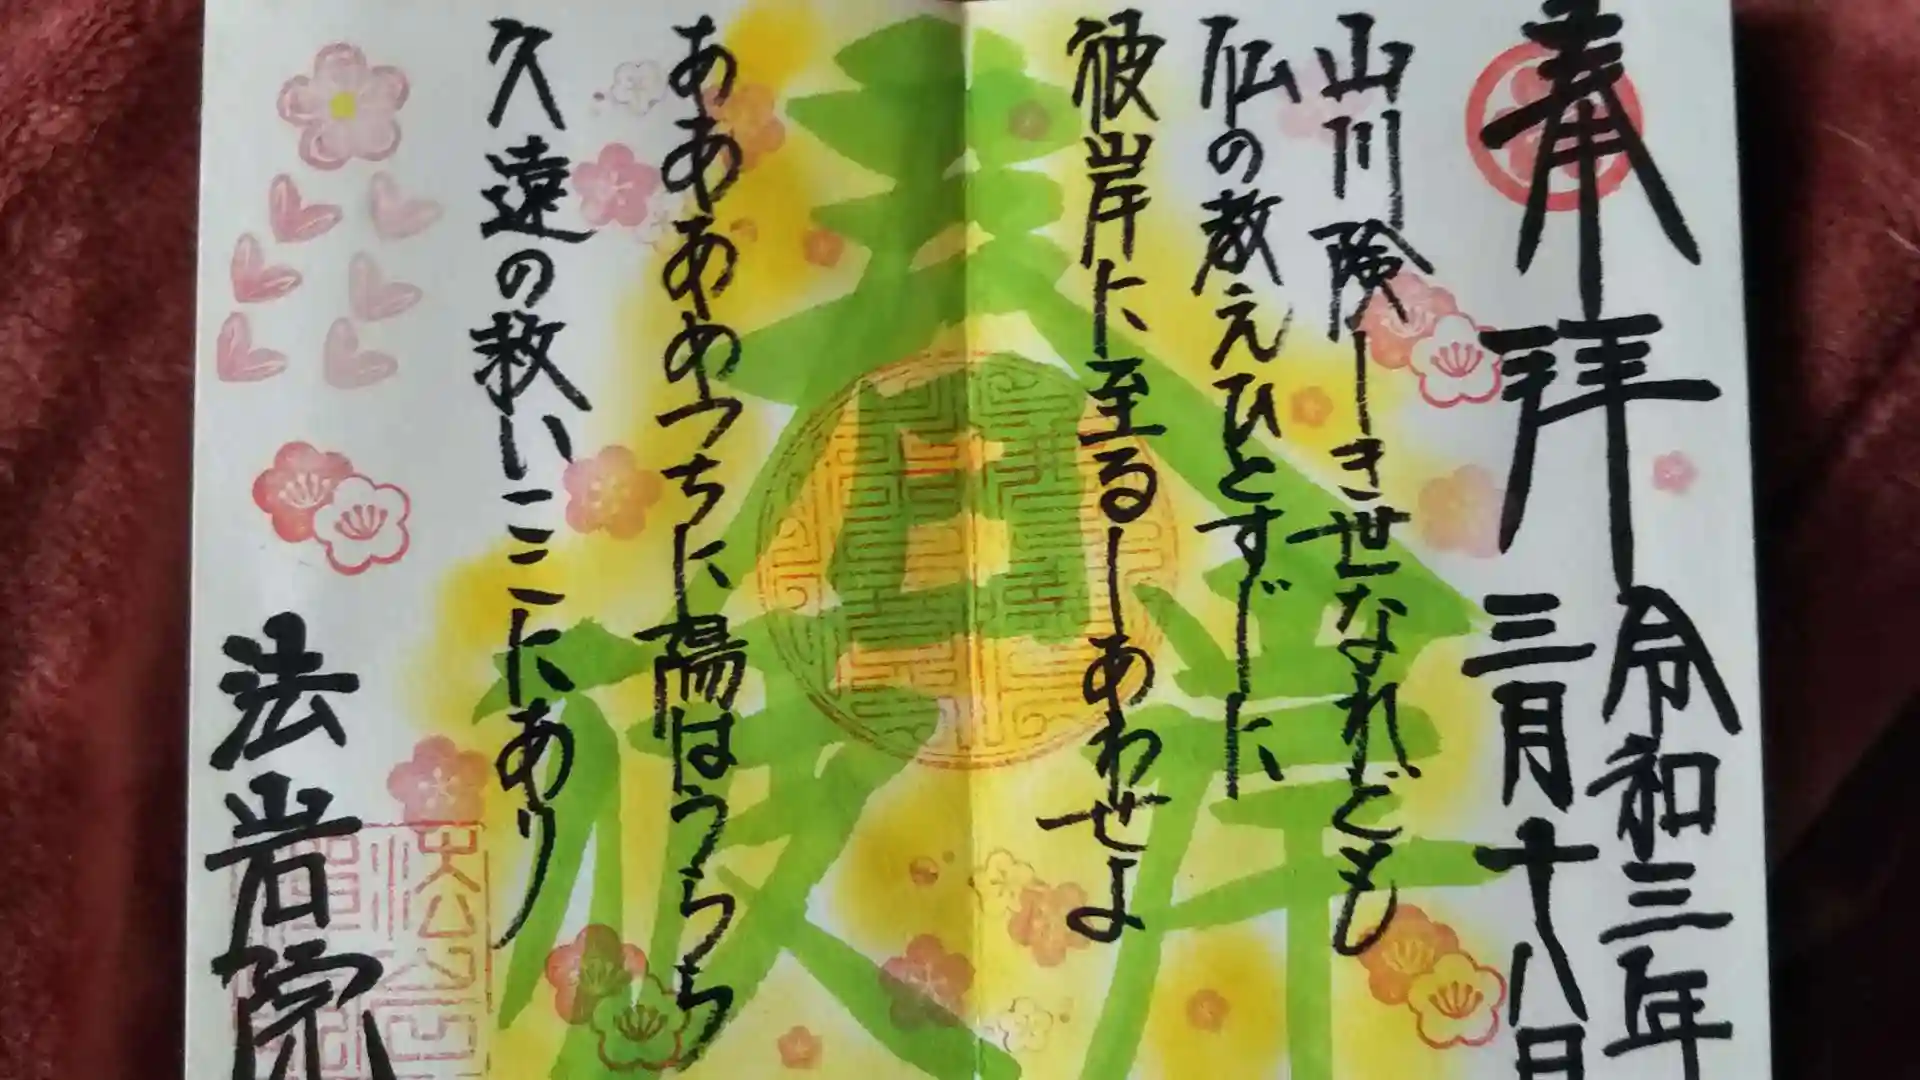 奉拝
令和三年
三月十八日
山川険しき世なれども
仏の教えひとすじに
彼岸に至るしあわせよ
ああああめつちに陽はうらら
久遠の救いここにあり
法岩院
春彼岸